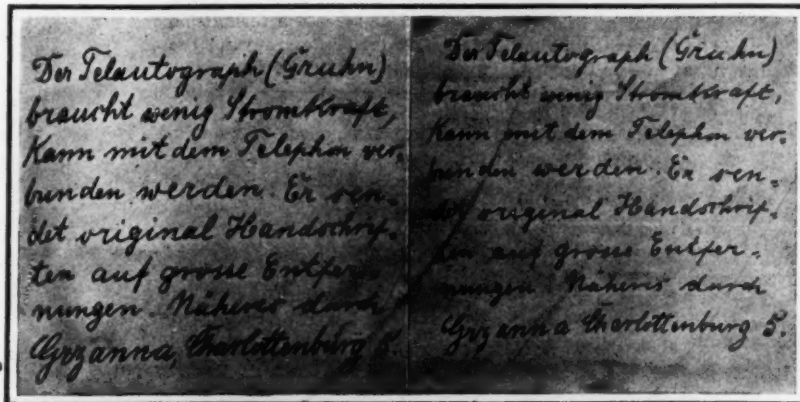 Der Telautograph (Gruhn)
braucht wenig Stromkraft,
Kann mit dem Telephon ver-
bunden werden. Er sen-
det original Handschrif-
ten auf grosse Entfer-
nungen. Näheres durch
Grzanna, Charlottenburg 5.
Der Telautograph (Gruhn)
braucht wenig Stromkraft,
Kann mit dem Telephon ver-
bunden werden. Er sen-
det original Handschrif-
ten auf grosse Entfer-
nungen. Näheres durch
Grzanna Charlottenburg 5.